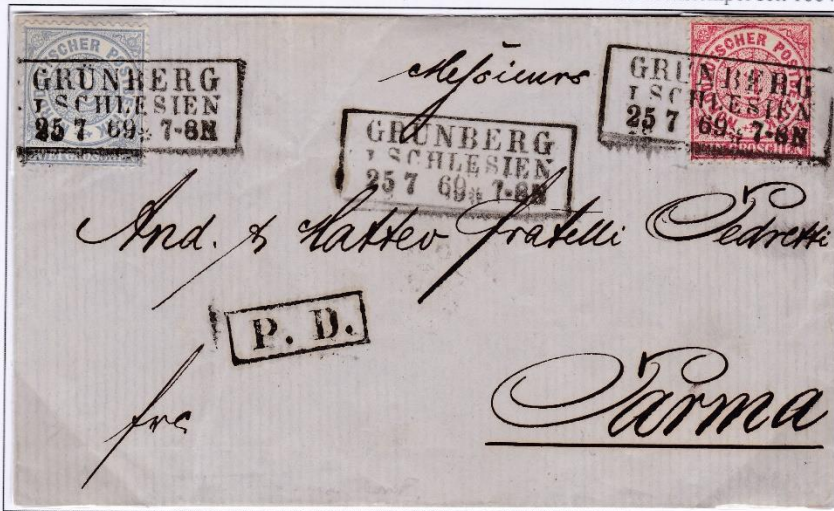 GRÜNBERG
I. SCHLESIEN
25 7 69 7-8N
Messieurs
GRÜNBERG
I. SCHLESIEN
25 7 69 7-8N
GRÜNBERG
I. SCHLESIEN
25 7 69 7-8N
And. & Matteo fratelli Pedretti
P. D.
frc
Parma